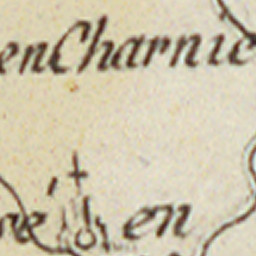 en Charnie
en